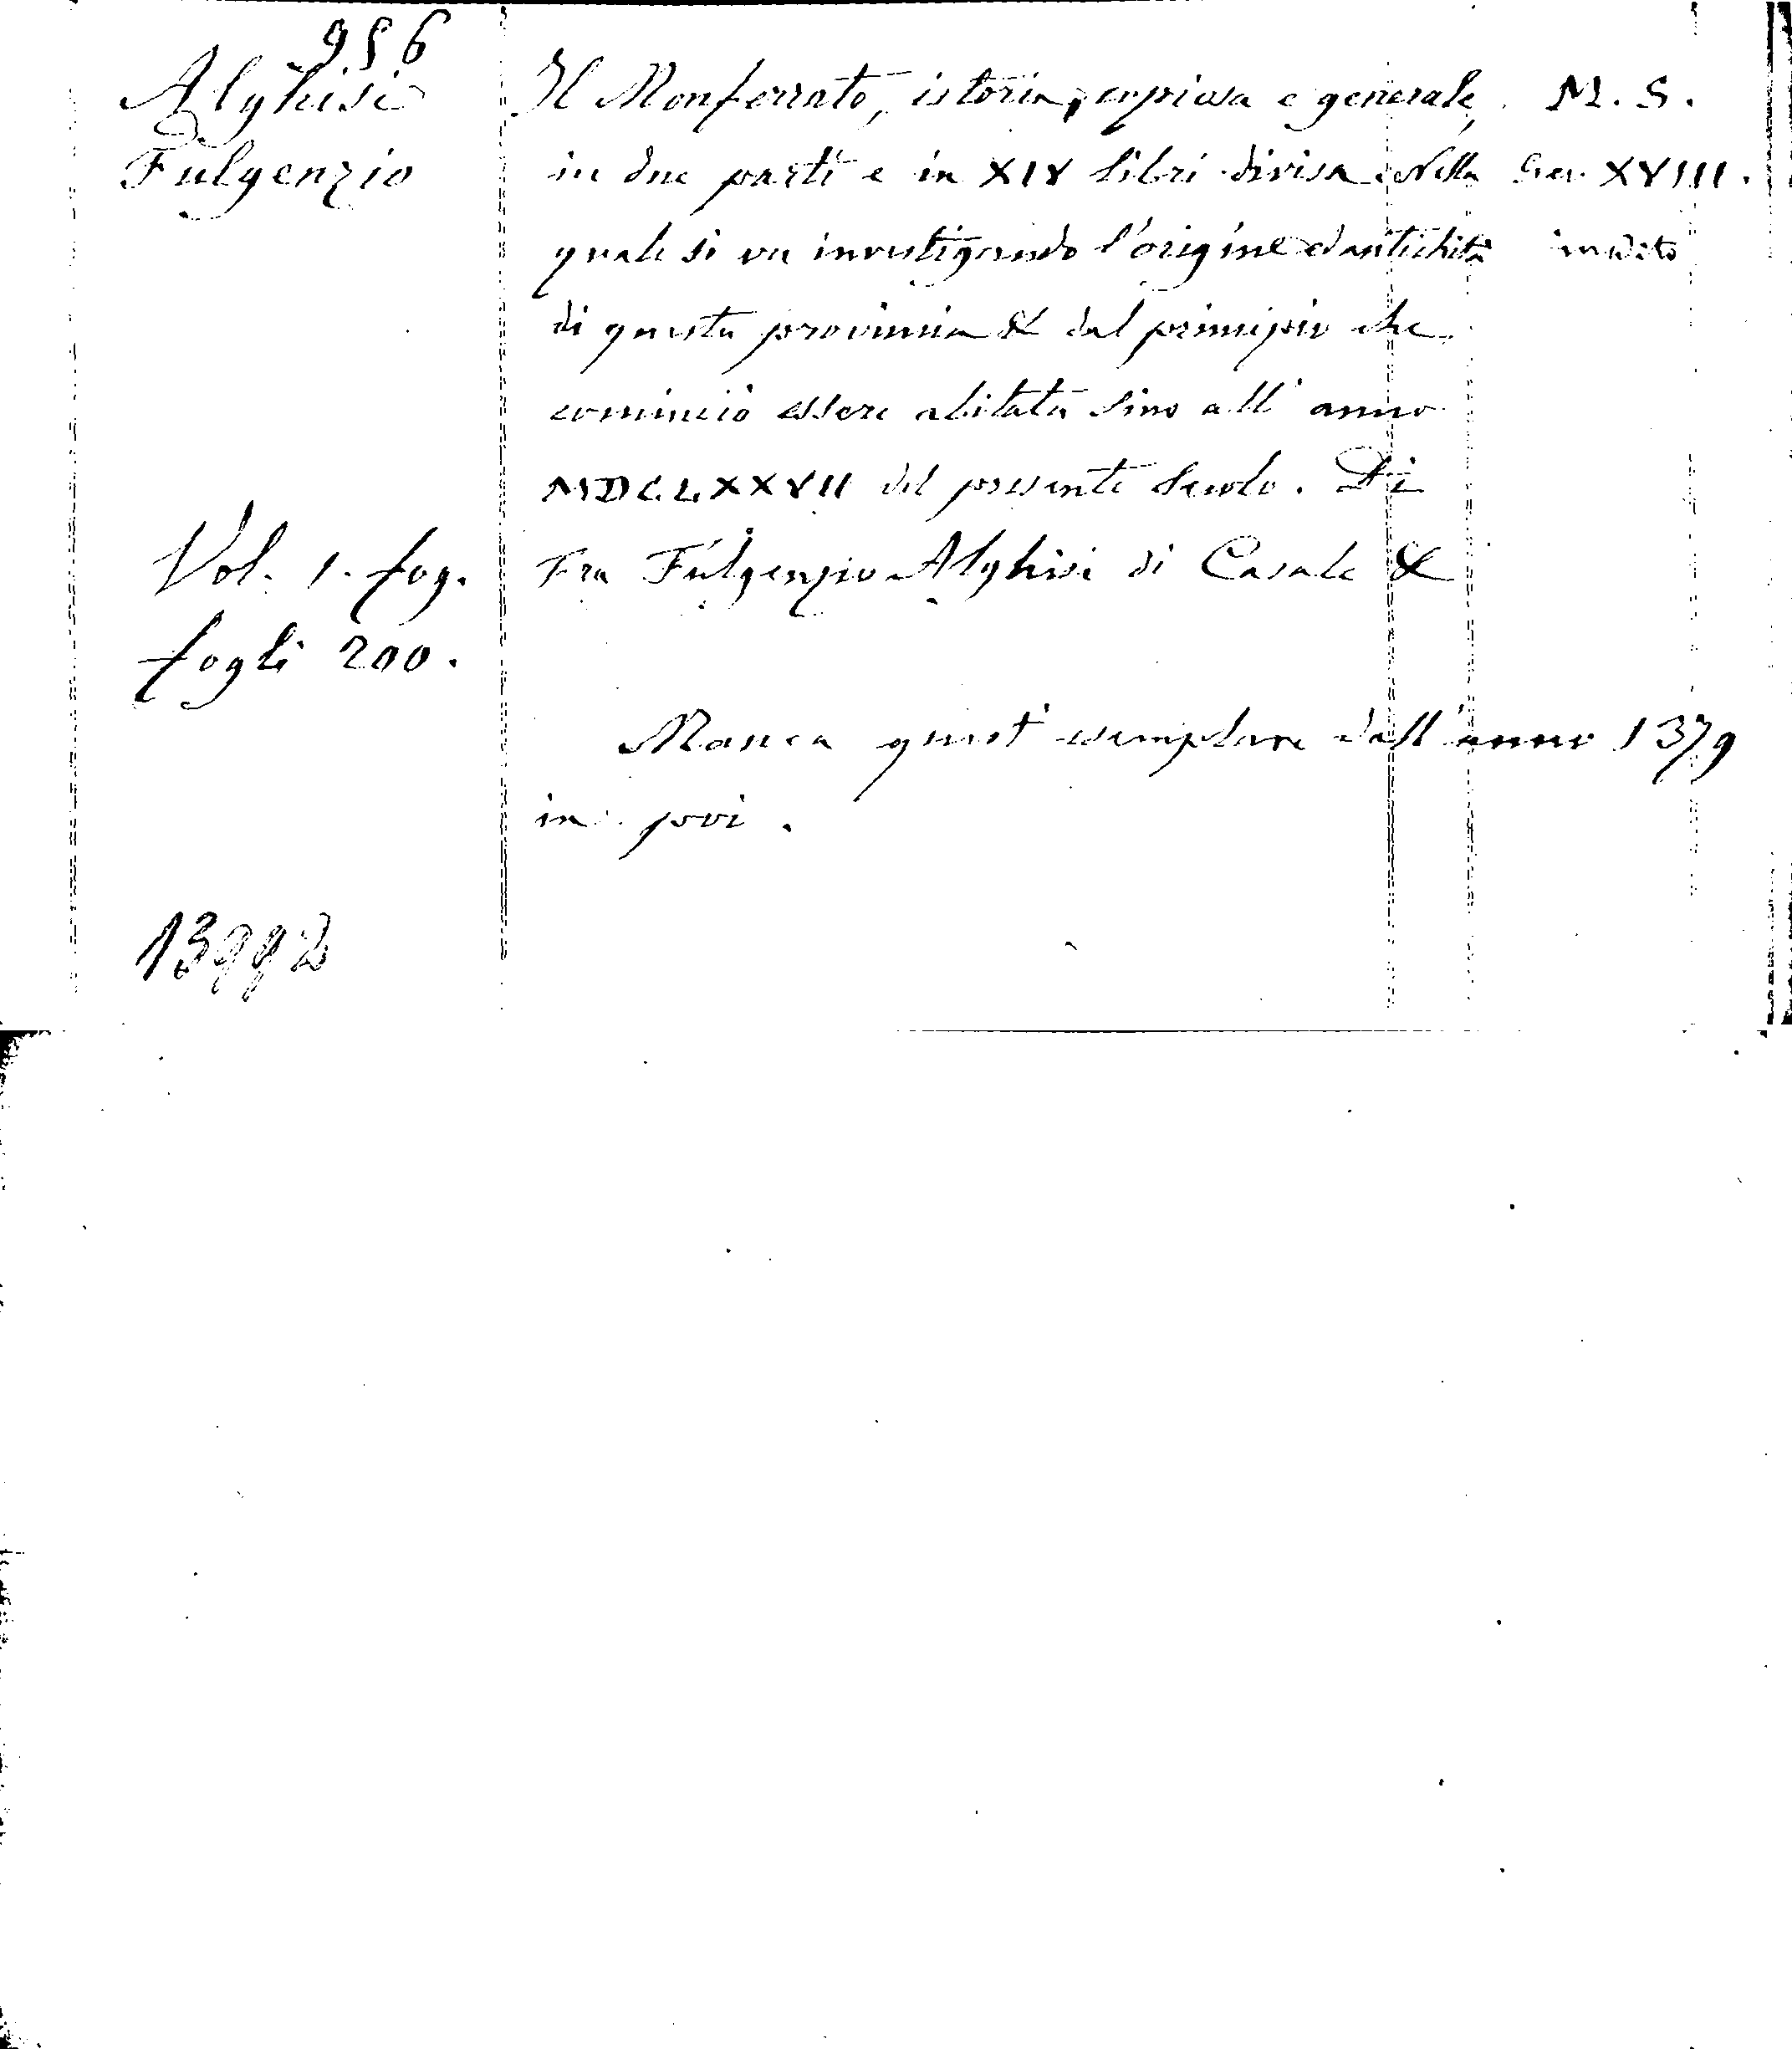 956
Alghisi
Fulgenzio
Il Monferrato, istoria, copiosa e generale, M. S.
in due parti e in XIV libri divisa. Nella Sec. XVIII.
quale si va investigando l'origine ed antichità inedito
di questa provincia & dal principio che
cominciò essere abitata sino all'anno
MDCLXXVII del presente secolo. Di
Fra Fulgenzio Alghisi di Casale &
Vol. 1. fog.
fogli 200.
Manca quest'esemplare dall'anno 1379
in poi.
13992